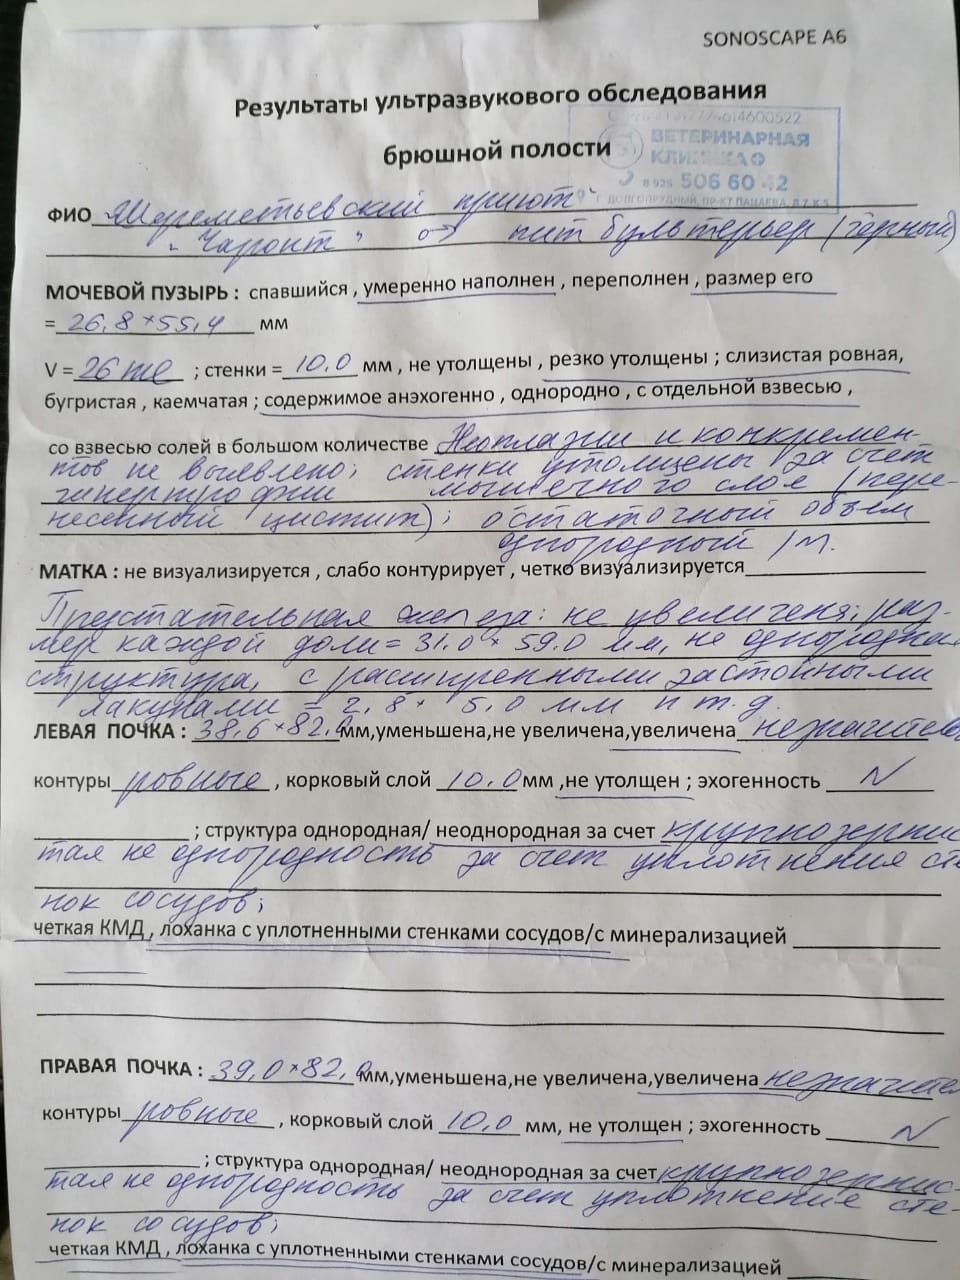 SONOSCAPE A6
Результаты ультразвукового обследования
брюшной полости
4614600522
ВЕТЕРИНАРНАЯ
КЛИНИКА
8 925 506 60 42
Г. ДОЛГОПРУДНЫЙ, ПР-КТ ПАЦАЕВА, Д.7 К.5
ФИО Шереметьевский приют
"Чаронт" ♂ пит бультерьер (черный)
МОЧЕВОЙ ПУЗЫРЬ : спавшийся , умеренно наполнен , переполнен , размер его
= 26,8 × 55,4 мм
V = 26 мл ; стенки = 10.0 мм , не утолщены , резко утолщены ; слизистая ровная,
бугристая , каемчатая ; содержимое анэхогенно , однородно , с отдельной взвесью ,
со взвесью солей в большом количестве Неоплазии и конкремен-
тов не выявлено; стенки утолщены за счет
гипертрофии мышечного слоя (пере-
несенный цистит); остаточный объем
однородный
МАТКА : не визуализируется , слабо контурирует , четко визуализируется
Предстательная железа: не увеличена; раз-
мер каждой доли = 31.0 × 59.0 мм, не однородная
структура, с расширенными застойными
лакунами = 2,8 × 5,0 мм и т.д.
ЛЕВАЯ ПОЧКА : 38,6 × 82,0 мм,уменьшена,не увеличена,увеличена незначител
контуры ровные , корковый слой 10.0 мм ,не утолщен ; эхогенность N
; структура однородная/ неоднородная за счет крупнозернис
тая не однородность за счет уплотнения сте
нок сосудов;
четкая КМД , лоханка с уплотненными стенками сосудов/с минерализацией
ПРАВАЯ ПОЧКА : 39,0 × 82,0 мм,уменьшена,не увеличена,увеличена незначите
контуры ровные , корковый слой 10,0 мм, не утолщен ; эхогенность N
; структура однородная/ неоднородная за счет крупнозернис-
тая не однородность за счет уплотнение сте-
нок сосудов;
четкая КМД , лоханка с уплотненными стенками сосудов/с минерализацией